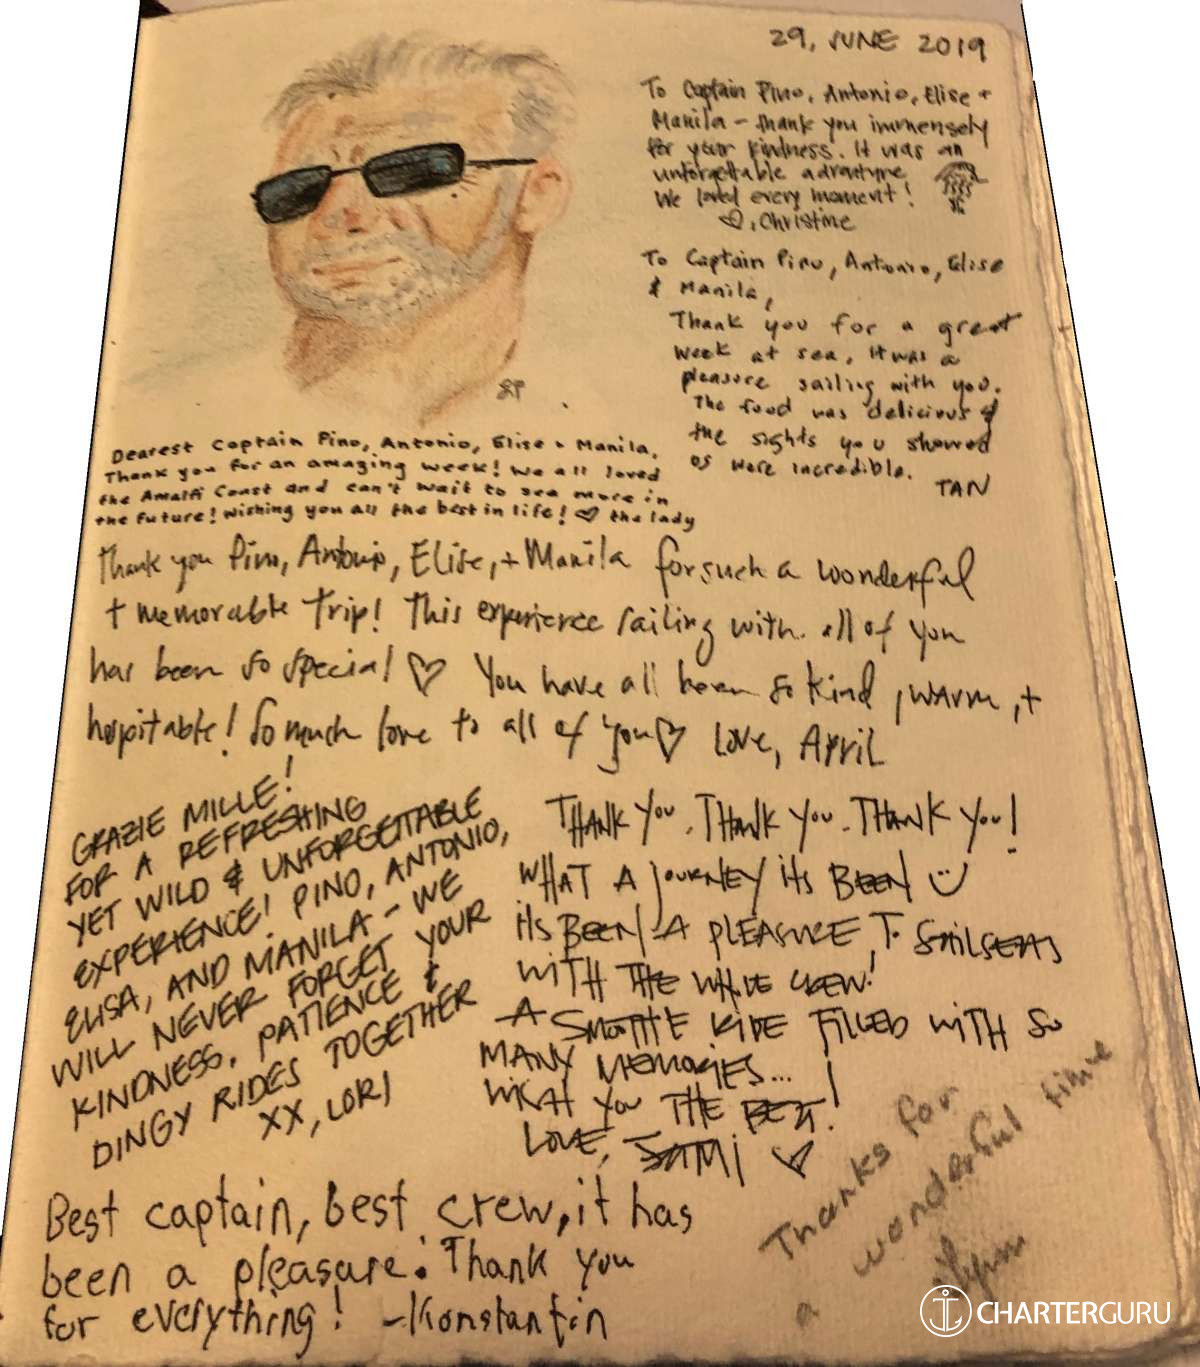 29, JUNE 2019
To Captain Pino, Antonio, Elise +
Manila – thank you immensely
for your kindness. It was an
unforgettable adventure
We loved every moment!
♡, Christine
To Captain Pino, Antonio, Elise
& Manila,
Thank you for a great
week at sea, it was a
pleasure sailing with you.
The food was delicious &
the sights you showed
us were incredible.
TAN
Dearest Captain Pino, Antonio, Elise + Manila,
Thank you for an amazing week! We all loved
the Amalfi Coast and can't wait to see more in
the future! Wishing you all the best in life! ♡ the lady
Thank you Pino, Antonio, Elise, + Manila for such a wonderful
+ memorable trip! This experience sailing with all of you
has been so special ♡ You have all been so kind, warm, +
hospitable! So much love to all of you ♡ Love, April
GRAZIE MILLE!
FOR A REFRESHING
YET WILD & UNFORGETTABLE
EXPERIENCE! PINO, ANTONIO,
ELISA, AND MANILA – WE
WILL NEVER FORGET YOUR
KINDNESS, PATIENCE &
DINGY RIDES TOGETHER
XX, LORI
THANK YOU. THANK YOU. THANK YOU!
WHAT A JOURNEY ITS BEEN
ITS BEEN A PLEASURE TO SAIL SEAS
WITH THE WHOLE CREW!
A SMOOTHE RIDE FILLED WITH SO
MANY MEMORIES...
WISH YOU THE BEST!
LOVE, SAMI ♡
Best captain, best crew, it has
been a pleasure. Thank you
for everything! – Konstantin
Thanks for
a wonderful time
CHARTERGURU